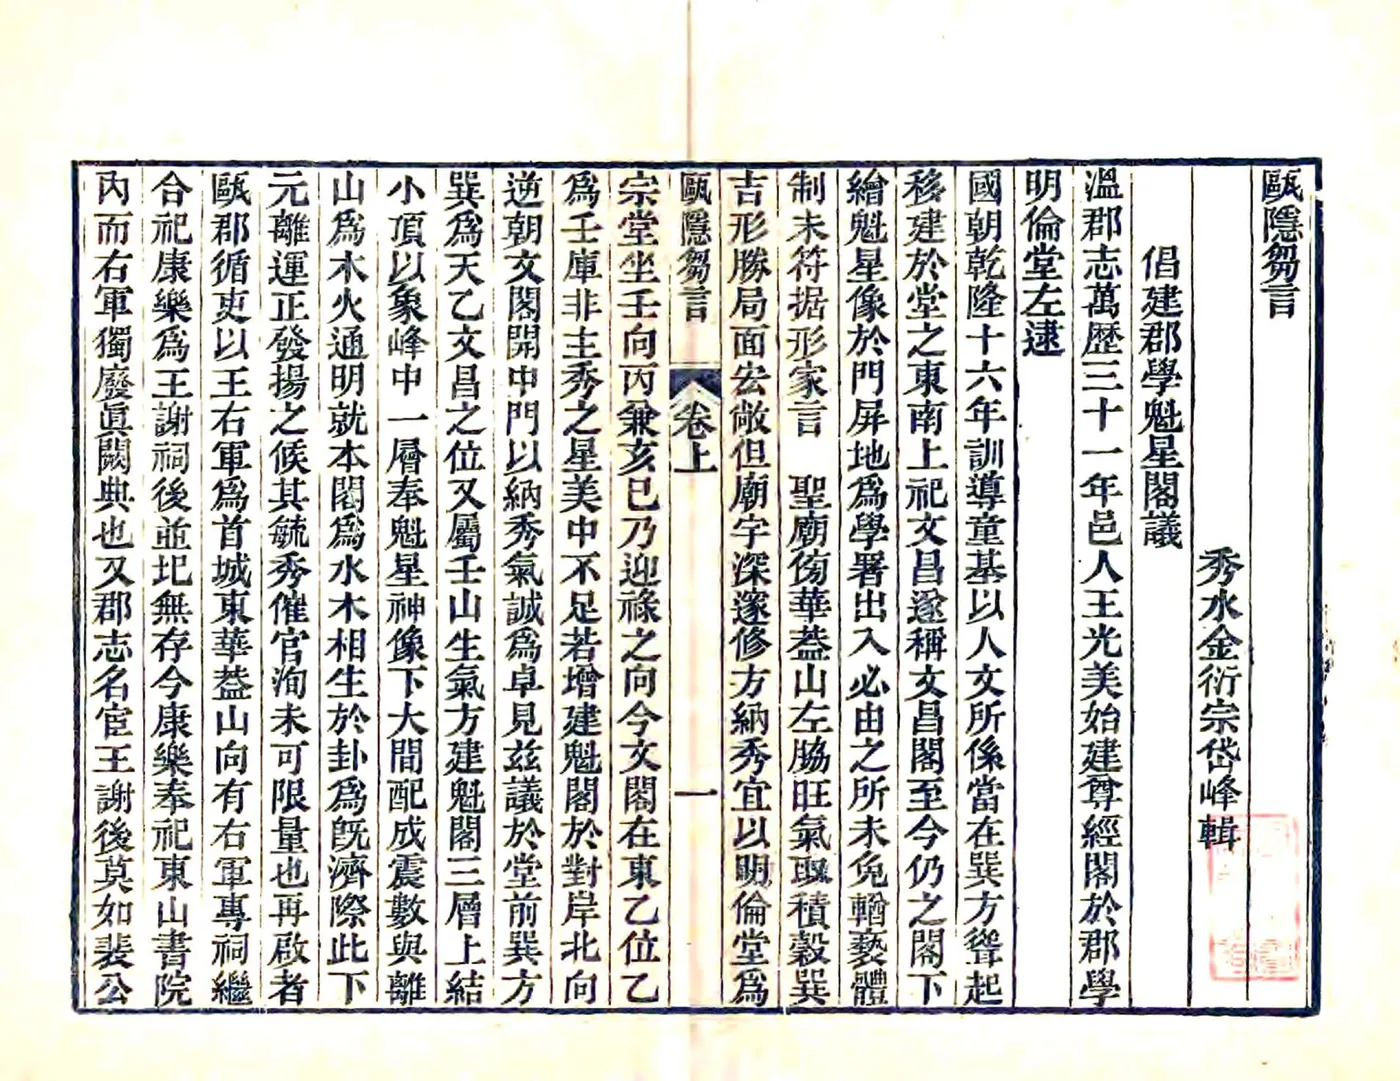 甌隱芻言
秀水金衍宗岱峰輯
倡建郡學魁星閣議
溫郡志萬歷三十一年邑人王光美始建尊經閣於郡學
明倫堂左逮
國朝乾隆十六年訓導童基以人文所係當在巽方聳起
移建於堂之東南上祀文昌遂稱文昌閣至今仍之閣下
繪魁星像於門屏地為學署出入必由之所未免輶褻體
制未符据形家言　聖廟傍華葢山左脇旺氣聚積穀巽
吉形勝局面宏敞但廟宇深邃修方納秀宜以明倫堂為
甌隱芻言　卷上　一
宗堂坐壬向丙兼亥巳乃迎祿之向今文閣在東乙位乙
為壬庫非主秀之星美中不足若增建魁閣於對岸北向
逆朝文閣開中門以納秀氣誠為卓見茲議於堂前巽方
巽為天乙文昌之位又屬壬山生氣方建魁閣三層上結
小頂以象峰中一層奉魁星神像下大間配成震數與離
山為木火通明就本閣為水木相生於卦為旣濟際此下
元離運正發揚之候其毓秀催官洵未可限量也再啟者
甌郡循吏以王右軍為首城東華葢山向有右軍專祠繼
合祀康樂為王謝祠後並圮無存今康樂奉祀東山書院
內而右軍獨廢眞闕典也又郡志名宦王謝後莫如裴公